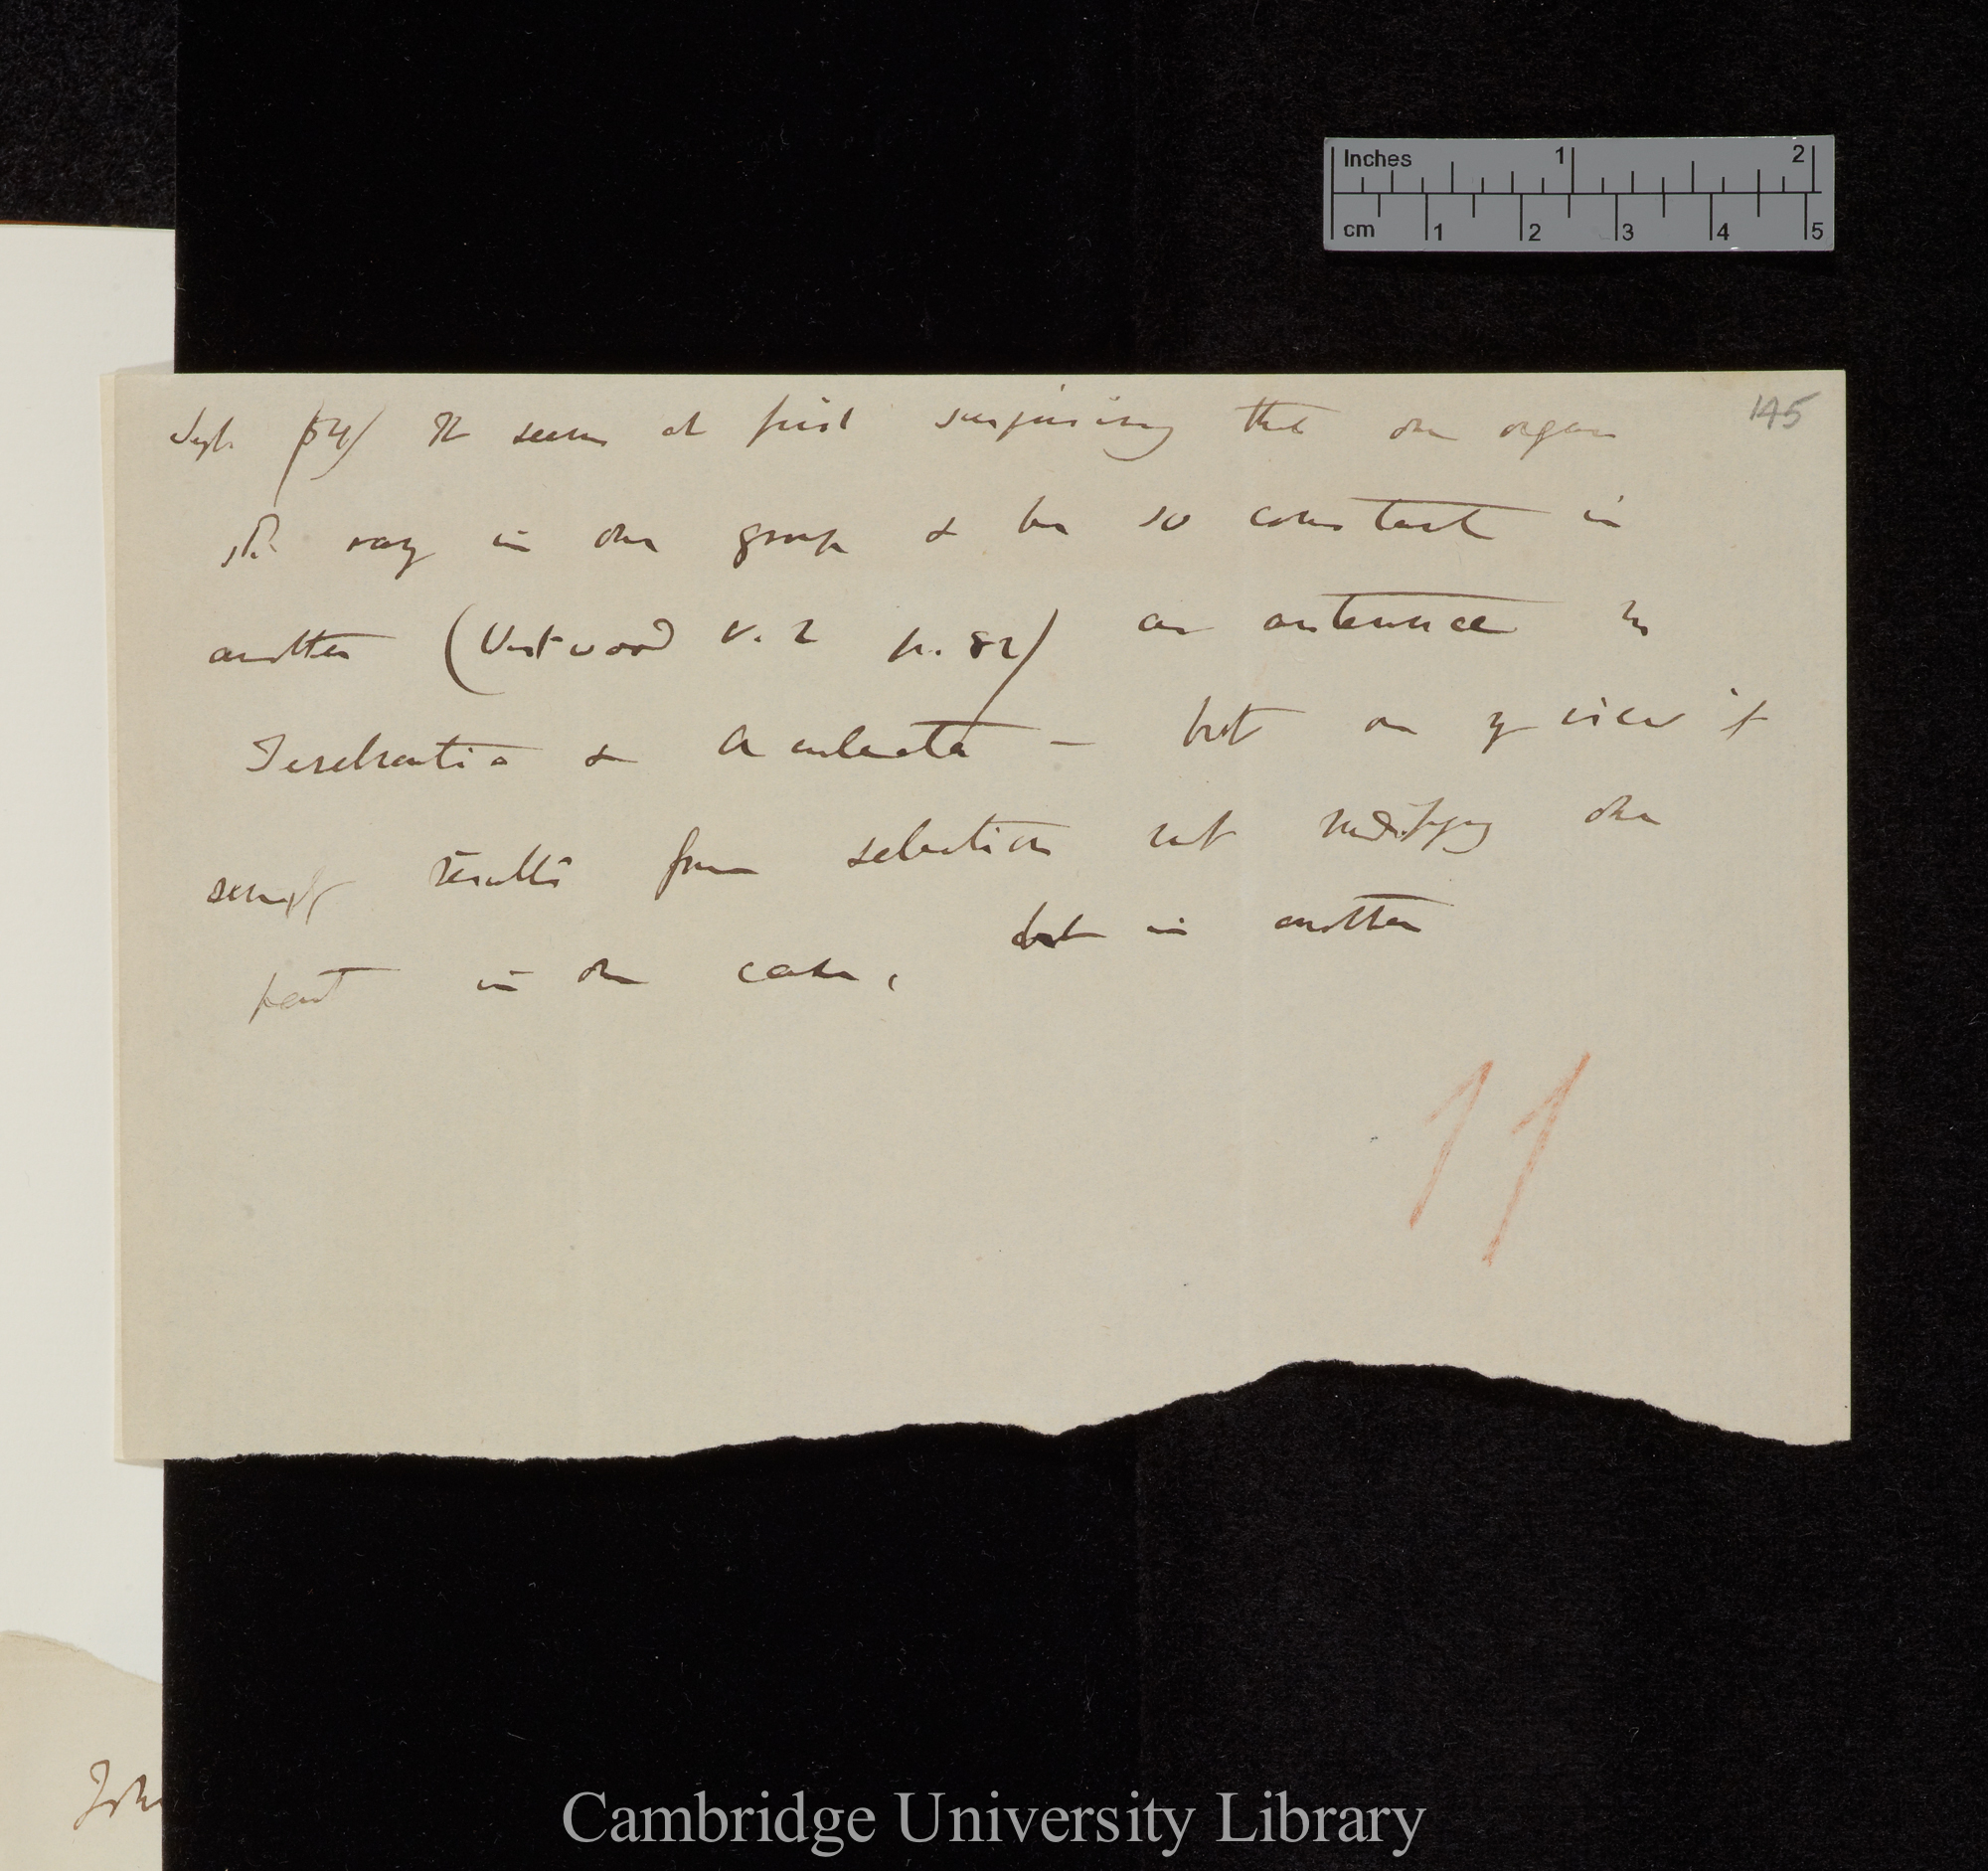 145
Sept. /54/ It seems at first surprising that one organ
shd. vary in one group & be so constant in
another (Westwood V. 2 p. 82) as antennae in
Terebrantia & Aculeata — but on my view it
simply results from selection not modifying one
part in one case, but in another
11
Inches 1 2
cm 1 2 3 4 5
Cambridge University Library